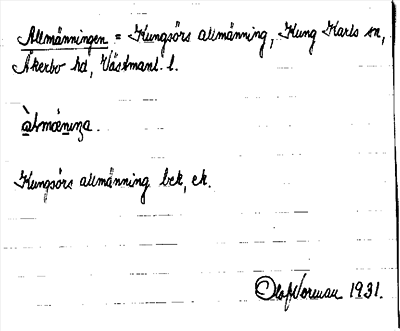 Allmänningen = Kungsörs allmänning, Kung Karls sn,
Åkerbo hd, Västmanl. l.
àlmæniŋa.
Kungsörs allmänning bek, ek.
Olof Norman 1931.